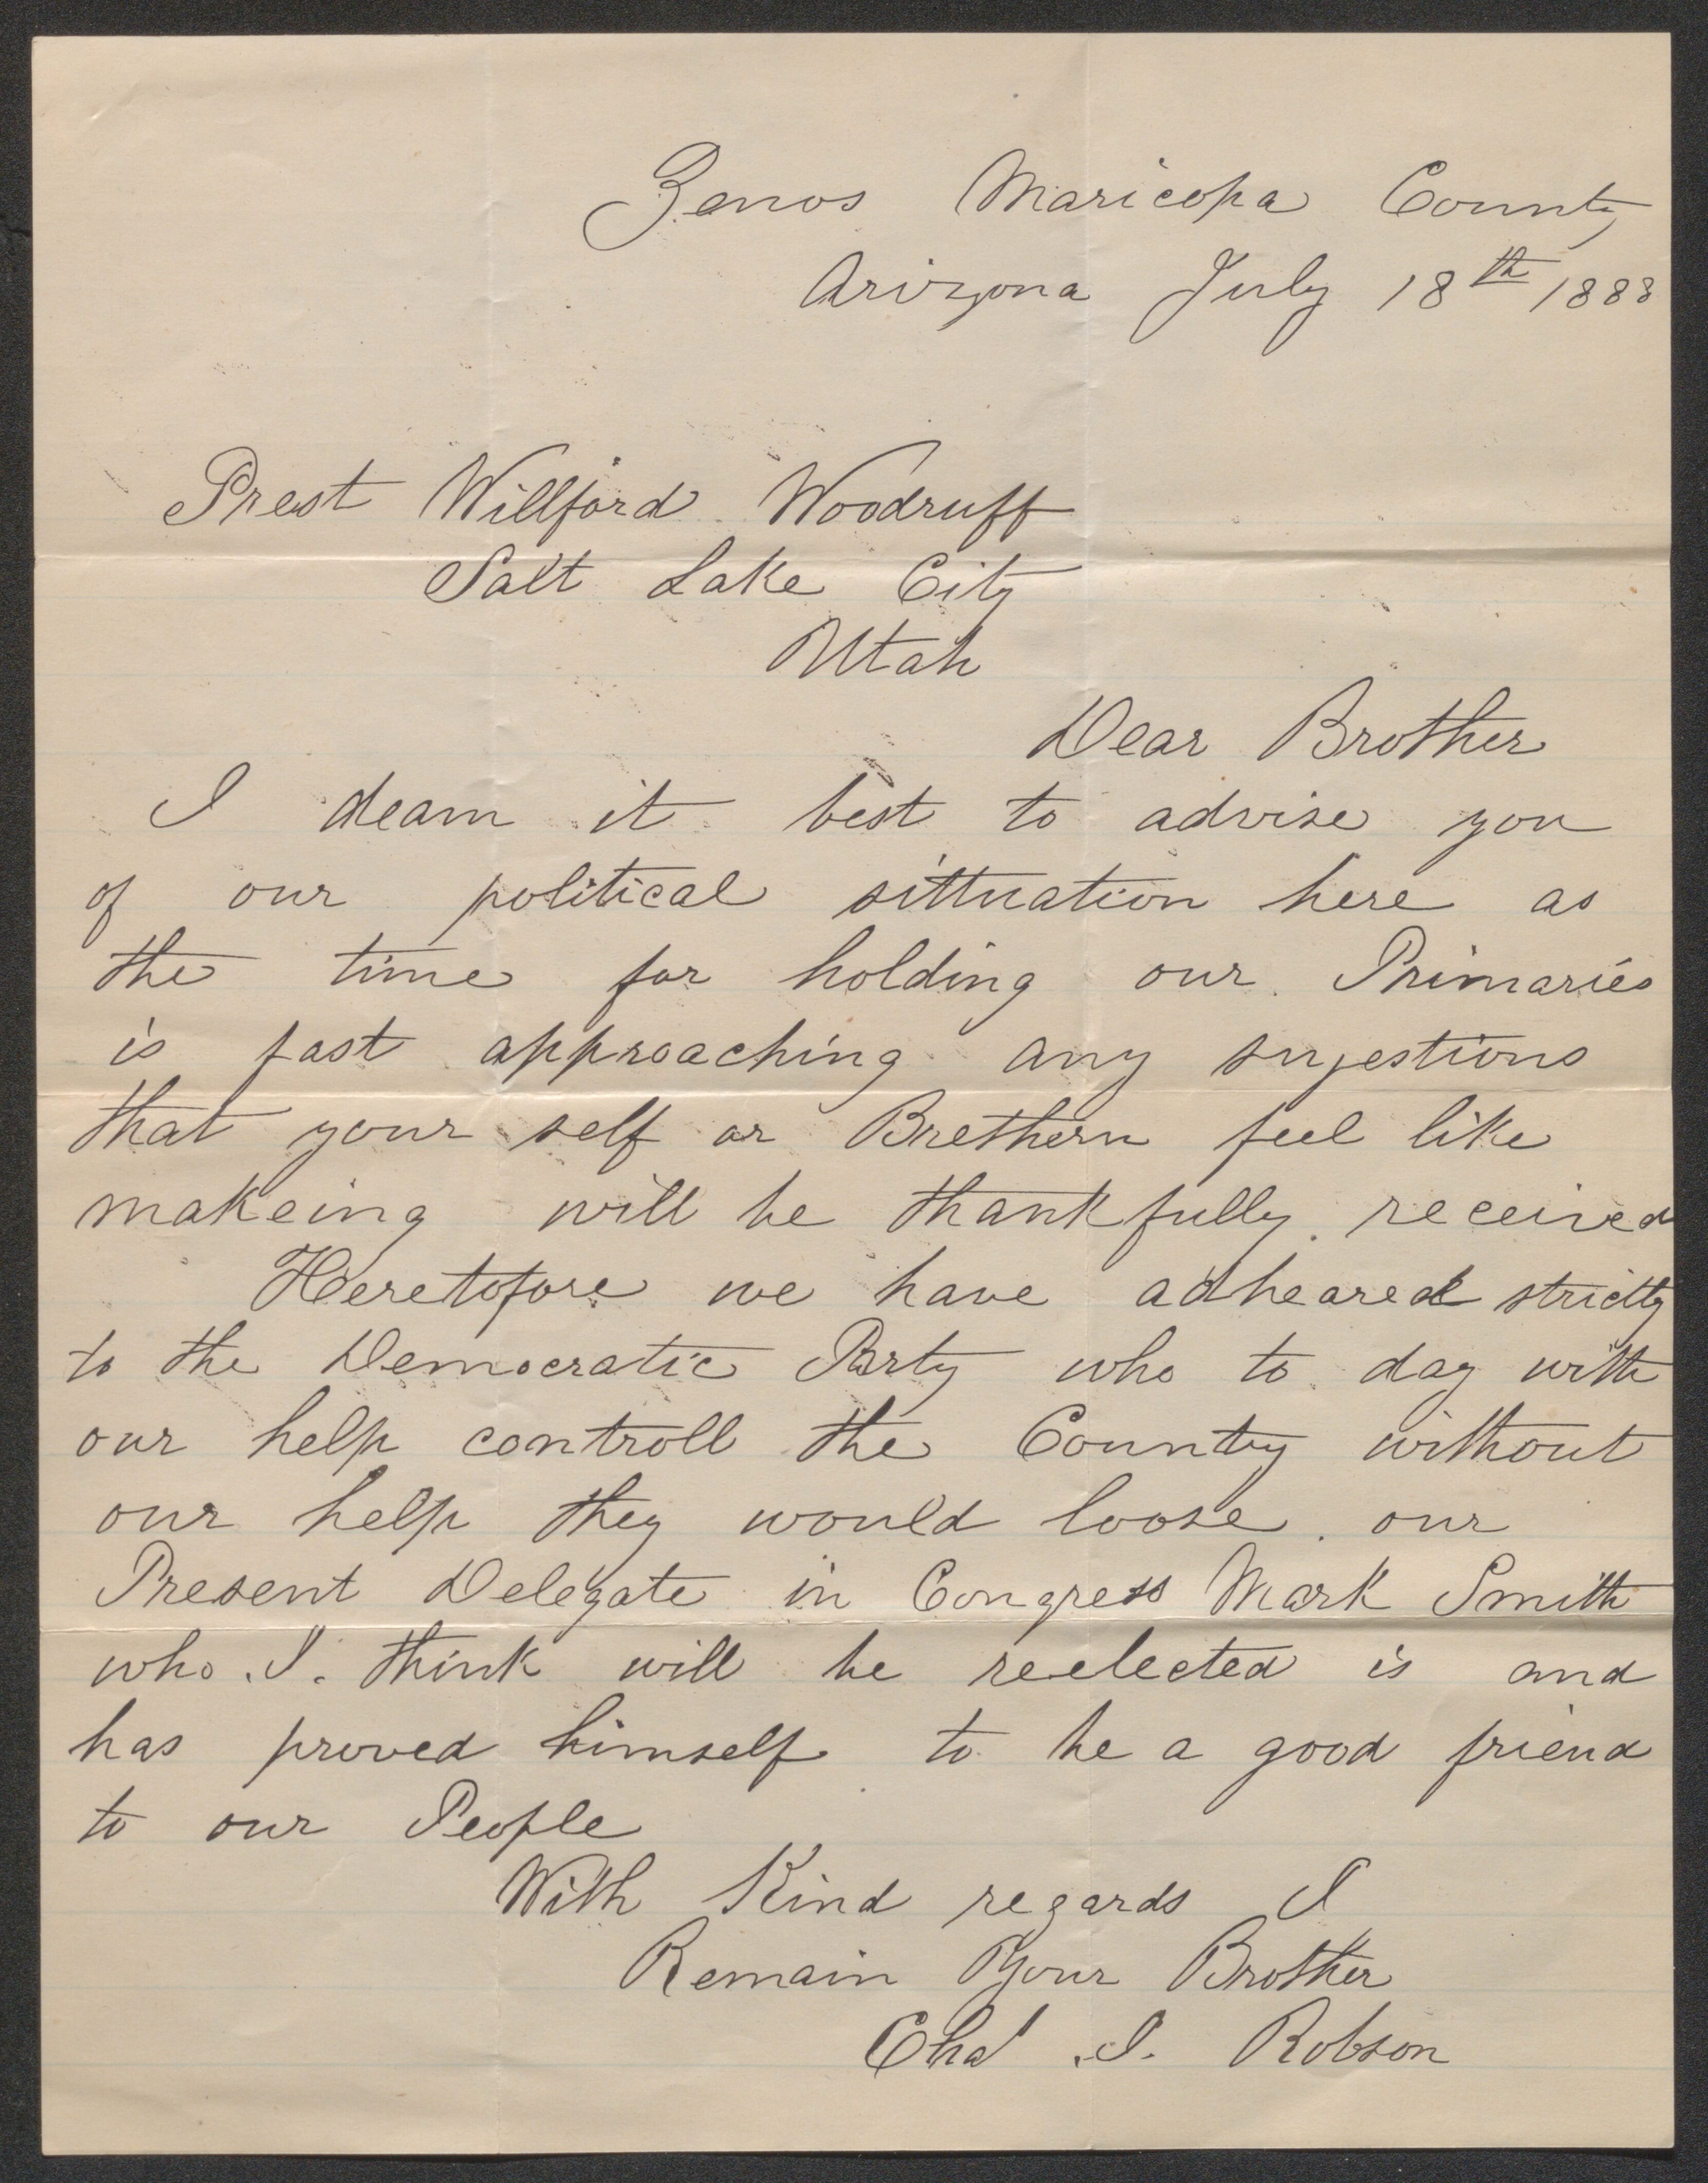 Zenos Maricopa County
Arizona July 18th 1888
Prest Willford Woodruff
Salt Lake City
Utah
Dear Brother
I deam it best to advise you
of our political sittuation here as
the time for holding our Primaries
is fast approaching any sujestions
that your self or Brethern feel like
makeing will be thankfully received
Heretofore we have adheared strictly
to the Democratic Party who to day with
our help controll the County without
our help they would loose. our
Present Delegate in Congress Mark Smith
who I think will be reelected is and
has proved himself to be a good friend
to our People
With Kind regards I
Remain Your Brother
Chas. I. Robson